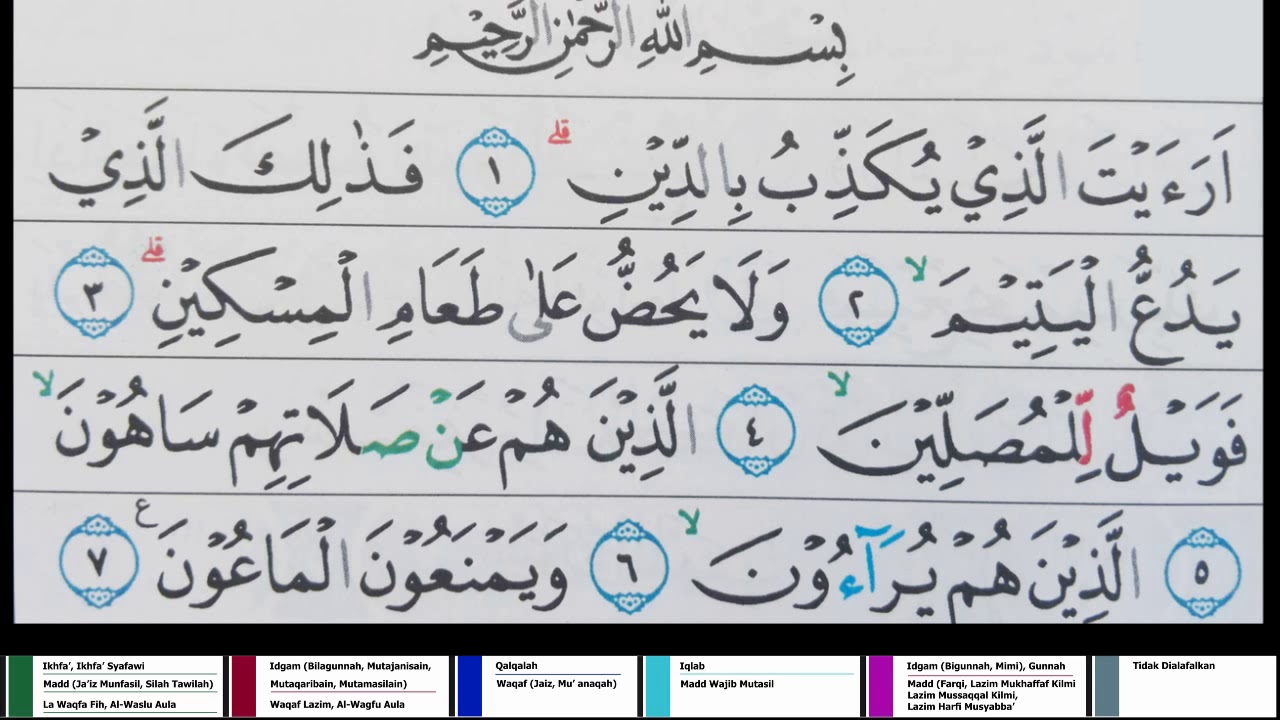 بِسْمِ اللهِ الرَّحْمٰنِ الرَّحِيْمِ
اَرَءَيْتَ الَّذِيْ يُكَذِّبُ بِالدِّيْنِ ۗ ١ فَذٰلِكَ الَّذِيْ
يَدُعُّ الْيَتِيْمَ ۙ ٢ وَلَا يَحُضُّ عَلٰى طَعَامِ الْمِسْكِيْنِ ۗ ٣
فَوَيْلٌ لِّلْمُصَلِّيْنَ ۙ ٤ الَّذِيْنَ هُمْ عَنْ صَلَاتِهِمْ سَاهُوْنَ ۙ
٥ الَّذِيْنَ هُمْ يُرَآءُوْنَ ۙ ٦ وَيَمْنَعُوْنَ الْمَاعُوْنَ ࣖ ٧
Ikhfa’, Ikhfa’ Syafawi
Madd (Ja’iz Munfasil, Silah Tawilah)
La Waqfa Fih, Al-Waslu Aula
Idgam (Bilagunnah, Mutajanisain,
Mutaqaribain, Mutamasilain)
Waqaf Lazim, Al-Wagfu Aula
Qalqalah
Waqaf (Jaiz, Mu’ anaqah)
Iqlab
Madd Wajib Mutasil
Idgam (Bigunnah, Mimi), Gunnah
Madd (Farqi, Lazim Mukhaffaf Kilmi
Lazim Mussaqqal Kilmi,
Lazim Harfi Musyabba’
Tidak Dialafalkan